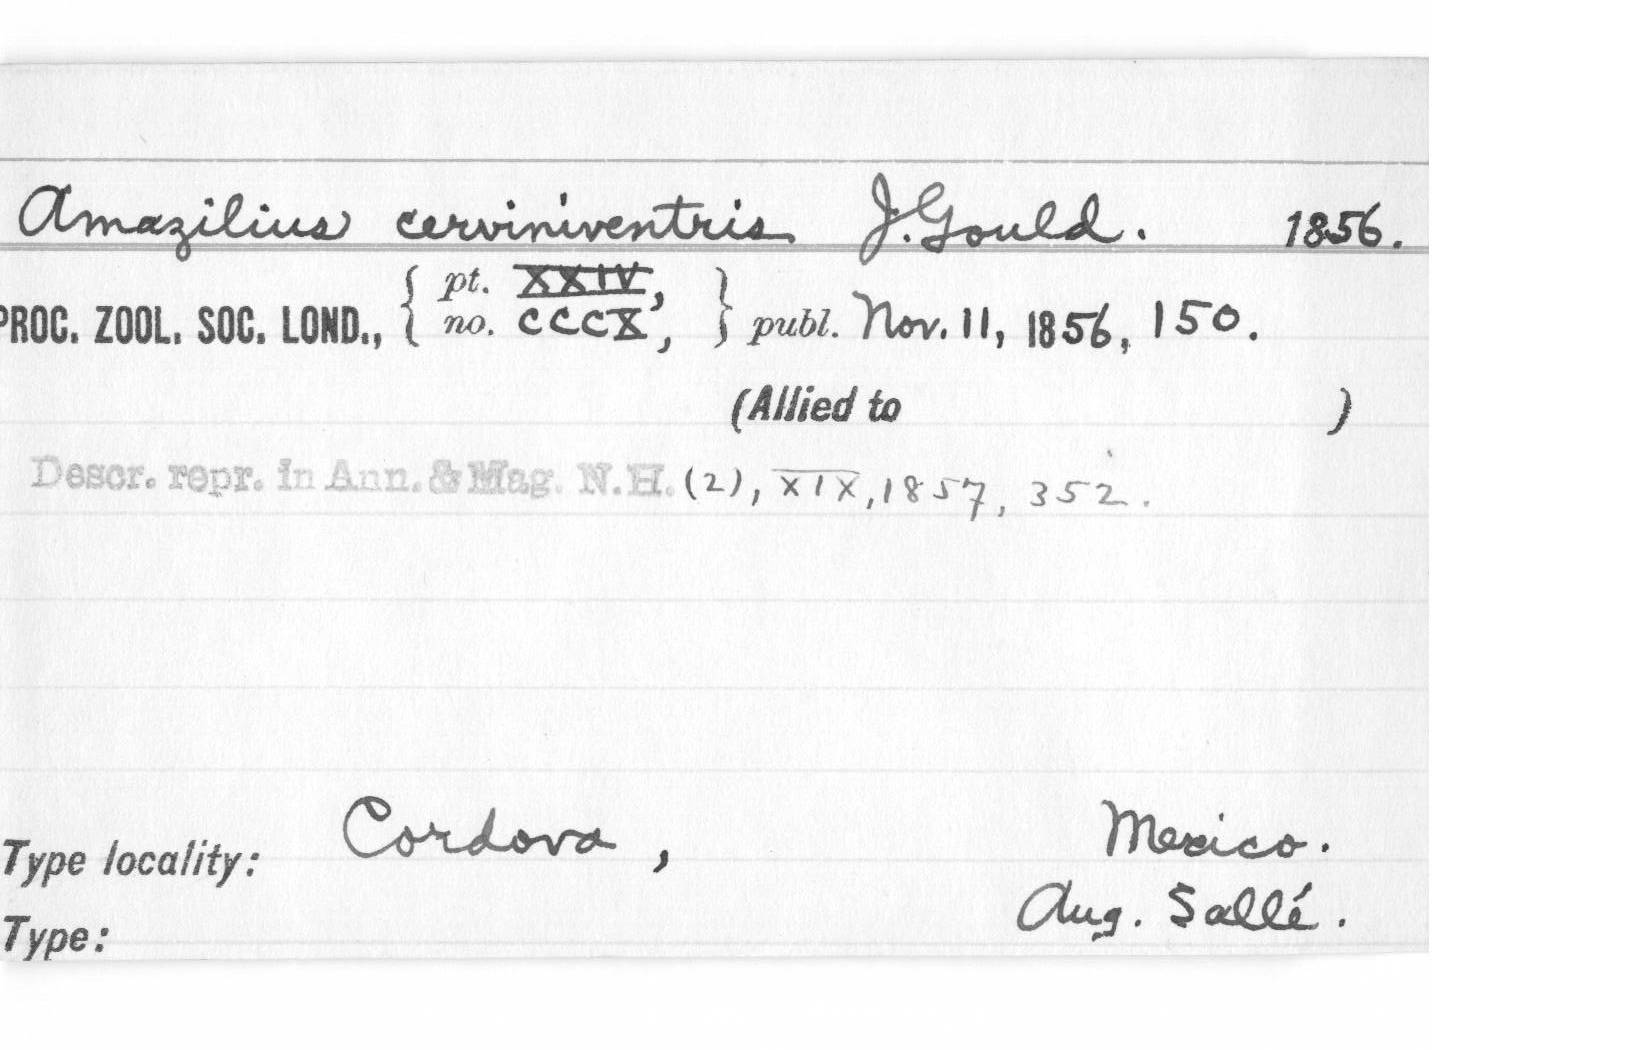 Amazilius cerviniventris J. Gould. 1856.
PROC. ZOOL. SOC. LOND., { pt. XXIV, no. CCCX, } publ. Nov. 11, 1856, 150.
(Allied to )
Descr. repr. in Ann. & Mag. N.H. (2), XIX, 1857, 352.
Type locality: Cordova, Mexico.
Aug. Sallé.
Type: